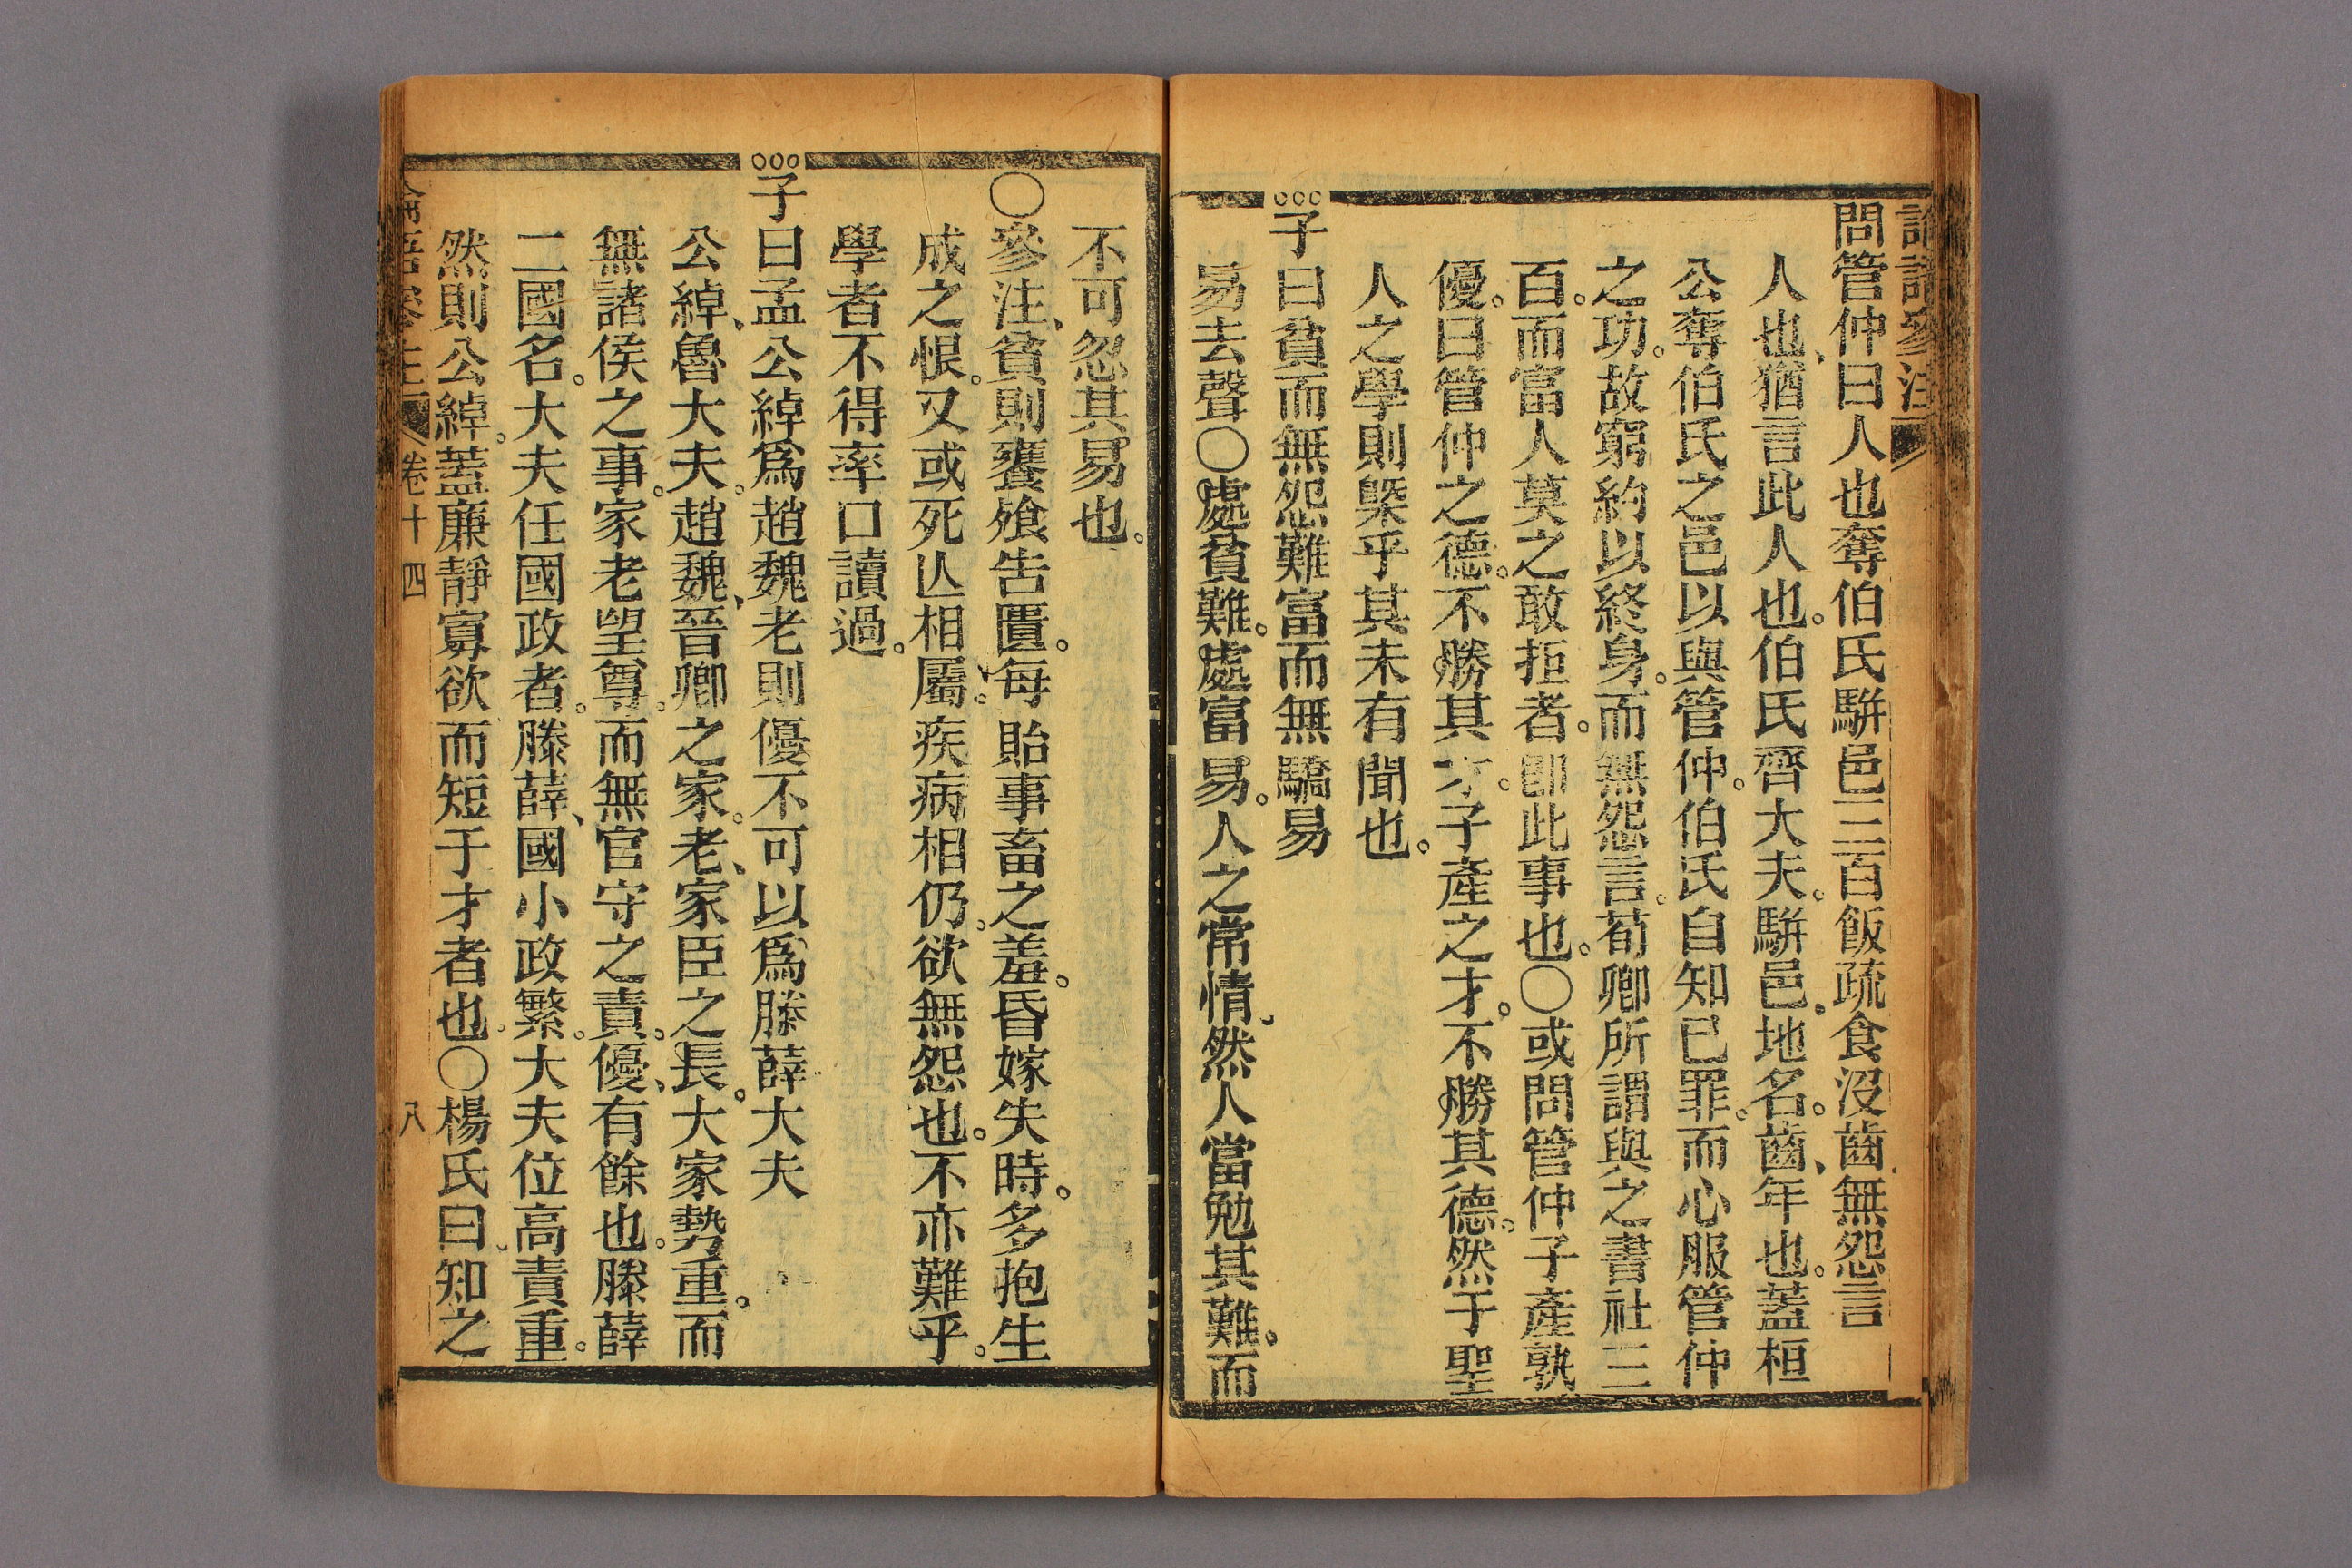 問管仲曰人也奪伯氏駢邑三百飯疏食沒齒無怨言
人也、猶言此人也。伯氏齊大夫。駢邑。地名。齒、年也。蓋桓
公奪伯氏之邑以與管仲。伯氏自知已罪。而心服管仲
之功。故窮約以終身。而無怨言。荀卿所謂與之書社三
百。而富人莫之敢拒者。卽此事也。○或問管仲子產孰
優。曰管仲之德。不勝其才。子產之才。不勝其德。然于聖
人之學則槩乎其未有聞也。
○○○子曰貧而無怨難富而無驕易
易去聲○處貧難。處富易。人之常情、然人當勉其難。而
不可忽其易也。
○參注、貧則饔飧吿匱。每貽事畜之羞。昏嫁失時。多抱生
成之恨。又或死亾相屬。疾病相仍。欲無怨也。不亦難乎。
學者不得率口讀過。
○○○子曰孟公綽爲趙魏老則優不可以爲滕薛大夫
公綽、魯大夫。趙魏、晉卿之家。老、家臣之長。大家勢重。而
無諸侯之事。家老望尊。而無官守之責。優、有餘也。滕薛
二國名。大夫任國政者。滕薛、國小政繁。大夫位高責重。
然則公綽。蓋廉靜寡欲而短于才者也。○楊氏曰、知之
語參注 卷十四 八